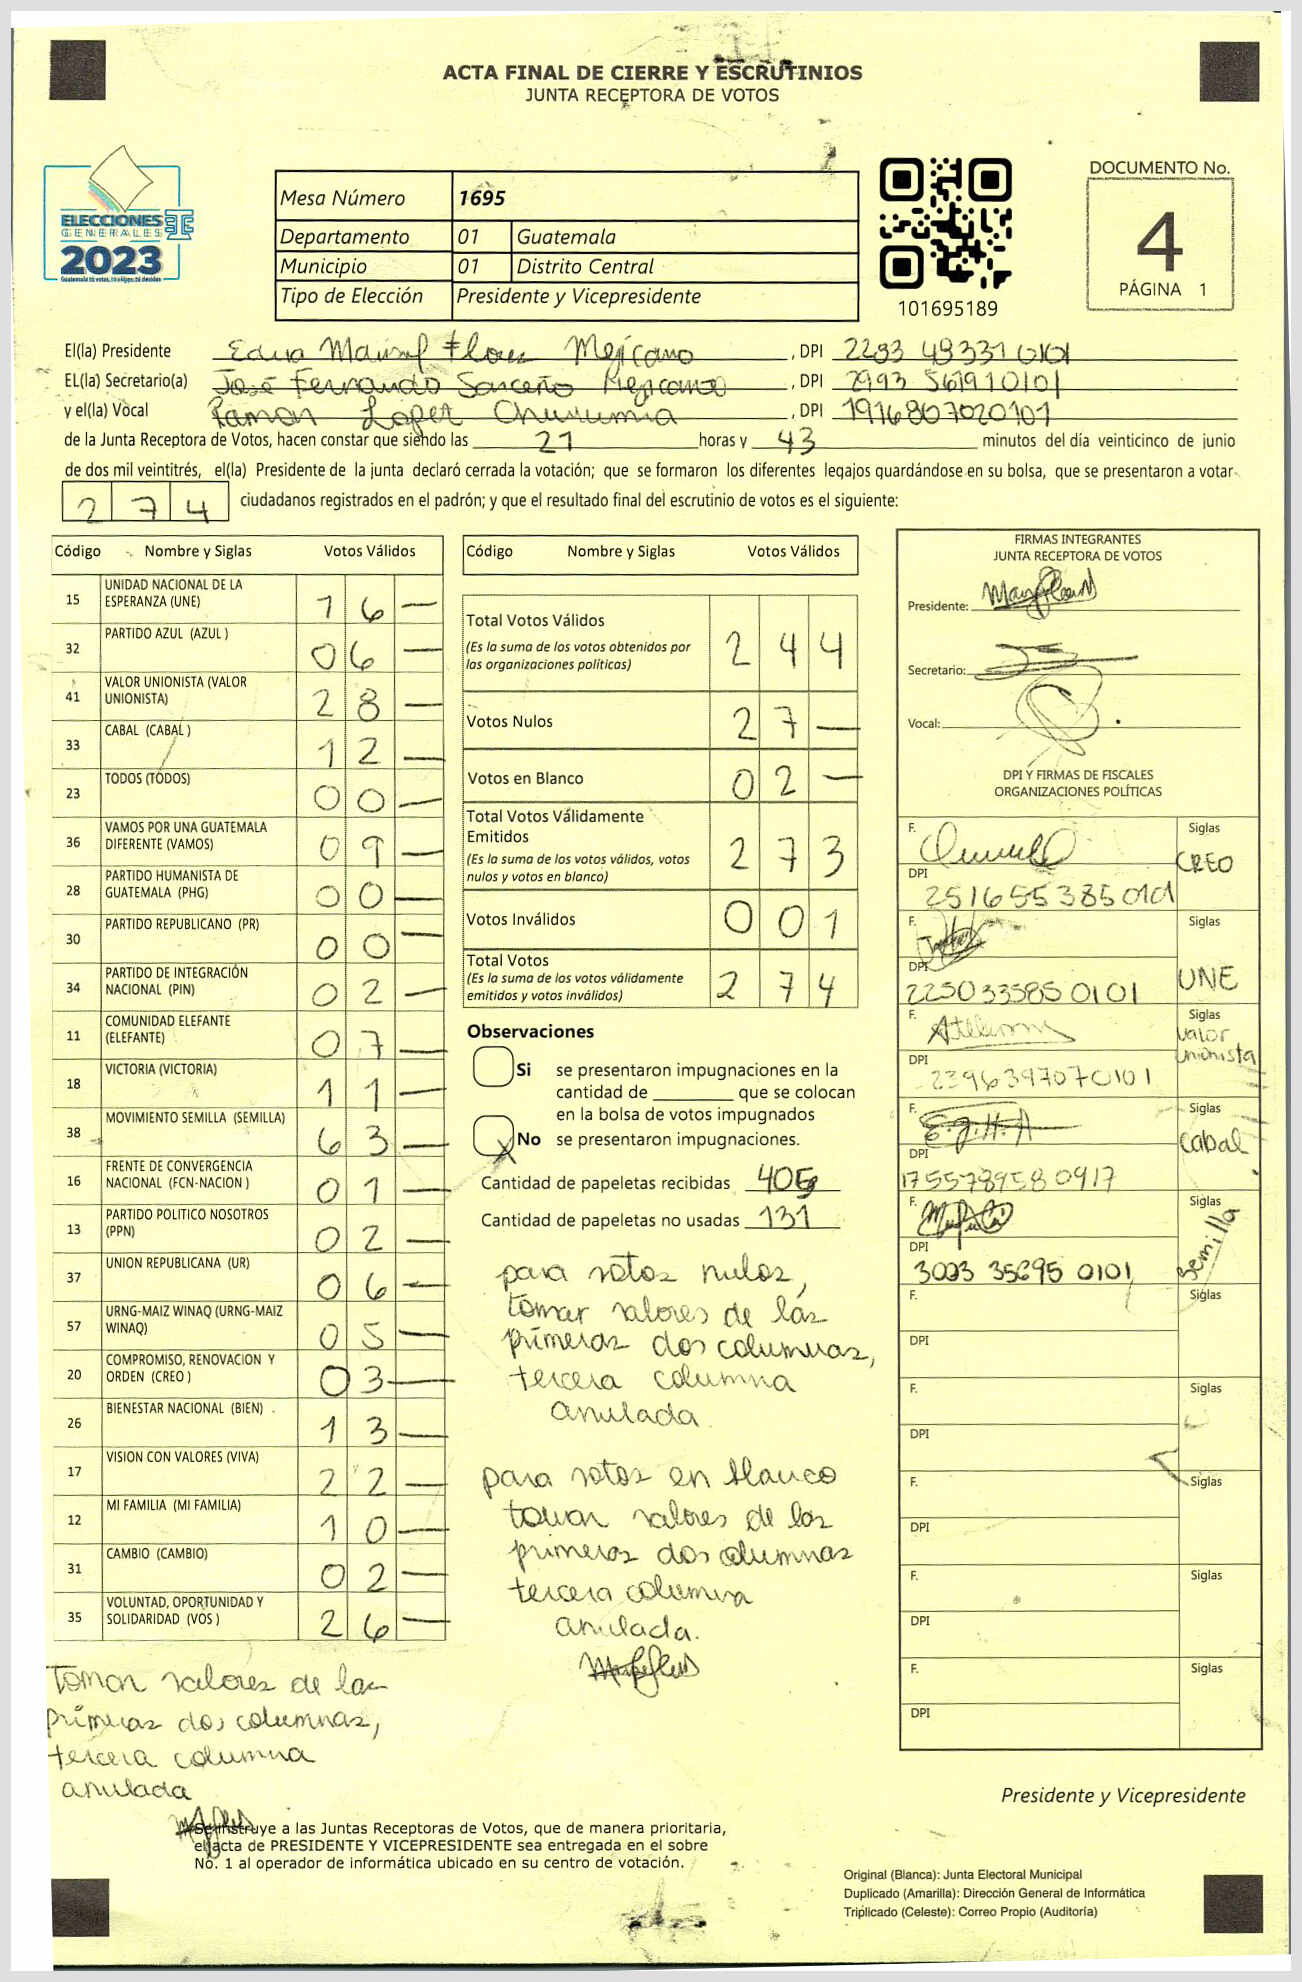 ACTA FINAL DE CIERRE Y ESCRUTINIOS
JUNTA RECEPTORA DE VOTOS
ELECCIONES
GENERALES
2023
Guatemala tú votas, tú eliges, tú decides
Mesa Número 1695
Departamento 01 Guatemala
Municipio 01 Distrito Central
Tipo de Elección Presidente y Vicepresidente
101695189
DOCUMENTO No.
4
PÁGINA 1
El(la) Presidente Flores Mejicano , DPI 2293 49331 0101
EL(la) Secretario(a) José Fernando Sarceño Mejicano , DPI 2993 561910101
y el(la) Vocal Ramon Lopez , DPI 1916807020101
de la Junta Receptora de Votos, hacen constar que siendo las 21 horas y 43 minutos del día veinticinco de junio
de dos mil veintitrés, el(la) Presidente de la junta declaró cerrada la votación; que se formaron los diferentes legajos guardándose en su bolsa, que se presentaron a votar
274 ciudadanos registrados en el padrón; y que el resultado final del escrutinio de votos es el siguiente:
Código Nombre y Siglas Votos Válidos
15 UNIDAD NACIONAL DE LA ESPERANZA (UNE) 16 —
32 PARTIDO AZUL (AZUL ) 06 —
41 VALOR UNIONISTA (VALOR UNIONISTA) 28 —
33 CABAL (CABAL ) 12 —
23 TODOS (TODOS) 00 —
36 VAMOS POR UNA GUATEMALA DIFERENTE (VAMOS) 09 —
28 PARTIDO HUMANISTA DE GUATEMALA (PHG) 00 —
30 PARTIDO REPUBLICANO (PR) 00 —
34 PARTIDO DE INTEGRACIÓN NACIONAL (PIN) 02 —
11 COMUNIDAD ELEFANTE (ELEFANTE) 07 —
18 VICTORIA (VICTORIA) 11 —
38 MOVIMIENTO SEMILLA (SEMILLA) 63 —
16 FRENTE DE CONVERGENCIA NACIONAL (FCN-NACION ) 01 —
13 PARTIDO POLITICO NOSOTROS (PPN) 02 —
37 UNION REPUBLICANA (UR) 06 —
57 URNG-MAIZ WINAQ (URNG-MAIZ WINAQ) 05 —
20 COMPROMISO, RENOVACION Y ORDEN (CREO ) 03 —
26 BIENESTAR NACIONAL (BIEN) 13 —
17 VISION CON VALORES (VIVA) 22 —
12 MI FAMILIA (MI FAMILIA) 10 —
31 CAMBIO (CAMBIO) 02 —
35 VOLUNTAD, OPORTUNIDAD Y SOLIDARIDAD (VOS ) 26 —
Tomar valores de las
primeras dos columnas,
tercera columna
anulada
Código Nombre y Siglas Votos Válidos
Total Votos Válidos 244
(Es la suma de los votos obtenidos por
las organizaciones políticas)
Votos Nulos 27 —
Votos en Blanco 02 —
Total Votos Válidamente
Emitidos 273
(Es la suma de los votos válidos, votos
nulos y votos en blanco)
Votos Inválidos 001
Total Votos 274
(Es la suma de los votos válidamente
emitidos y votos inválidos)
Observaciones
Si se presentaron impugnaciones en la
cantidad de ________ que se colocan
en la bolsa de votos impugnados
X No se presentaron impugnaciones.
Cantidad de papeletas recibidas 405
Cantidad de papeletas no usadas 131
para votos nulos,
tomar valores de las
primeras dos columnas,
tercera columna
anulada.
para votos en blanco
tomar valores de las
primeras dos columnas
tercera columna
anulada.
FIRMAS INTEGRANTES
JUNTA RECEPTORA DE VOTOS
Presidente:
Secretario:
Vocal:
DPI Y FIRMAS DE FISCALES
ORGANIZACIONES POLÍTICAS
F. Siglas
CREO
DPI
251655385 0101
F. Siglas
DPI UNE
225033585 0101
F. Siglas
Valor
Unionista
DPI
2396397070101
F. E.J.H.A Siglas
Cabal
DPI
1755789580917
F. Siglas
Semilla
DPI
3023 35695 0101
F. Siglas
DPI
F. Siglas
DPI
F. Siglas
DPI
F. Siglas
DPI
F. Siglas
DPI
Presidente y Vicepresidente
Se instruye a las Juntas Receptoras de Votos, que de manera prioritaria,
el acta de PRESIDENTE Y VICEPRESIDENTE sea entregada en el sobre
No. 1 al operador de informática ubicado en su centro de votación.
Original (Blanca): Junta Electoral Municipal
Duplicado (Amarilla): Dirección General de Informática
Triplicado (Celeste): Correo Propio (Auditoría)